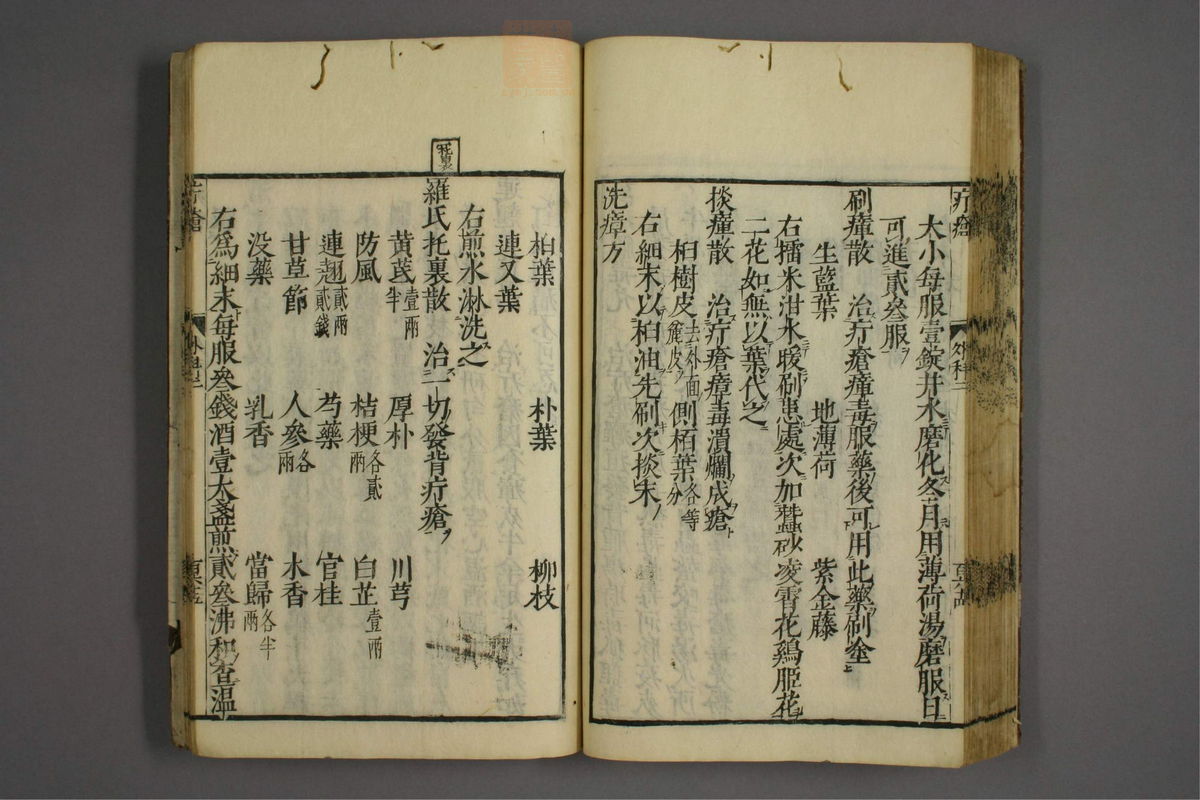 疔瘡
外科二
大小每服壹錠井水磨化冬月用薄荷湯磨服日
可進貳叄服
刷瘴散 治疔瘡瘴毒服藥後可用此藥刷塗
生藍葉 地薄荷 紫金藤
右擂米泔水暖刷患處次加蠶砂凌霄花鷄腳花
二花如無以葉代之
掞瘴散 治疔瘡瘴毒潰爛成瘡
桕樹皮去外一面麄皮 側栢葉各等分
右細末以桕油先刷次掞末
洗瘴方
桕葉 朴葉 柳枝
連叉葉
右煎水淋洗之
托裏
羅氏托裏散 治一切發背疔瘡
黄芪壹兩半 厚朴 川芎
防風 桔梗各貳兩 白芷壹兩
連翹貳兩貳錢 芍藥 官桂
甘草節 人參各兩 木香
没藥 乳香 當歸各半兩
右爲細末每服叄錢酒壹大盞煎貳叄沸和查溫
疔瘡